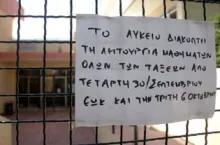 ΤΟ ΛΥΚΕΙΟ ΔΙΑΚΟΠΤΕΙ
ΤΗ ΛΕΙΤΟΥΡΓΙΑ ΜΑΘΗΜΑΤΩΝ
ΟΛΩΝ ΤΩΝ ΤΑΞΕΩΝ ΑΠΟ
ΤΕΤΑΡΤΗ 30/ΣΕΠΤΕΜΒΡΙΟΥ
ΕΩΣ ΚΑΙ ΤΗΝ ΤΡΙΤΗ 6 ΟΚΤΩΒΡΙΟΥ